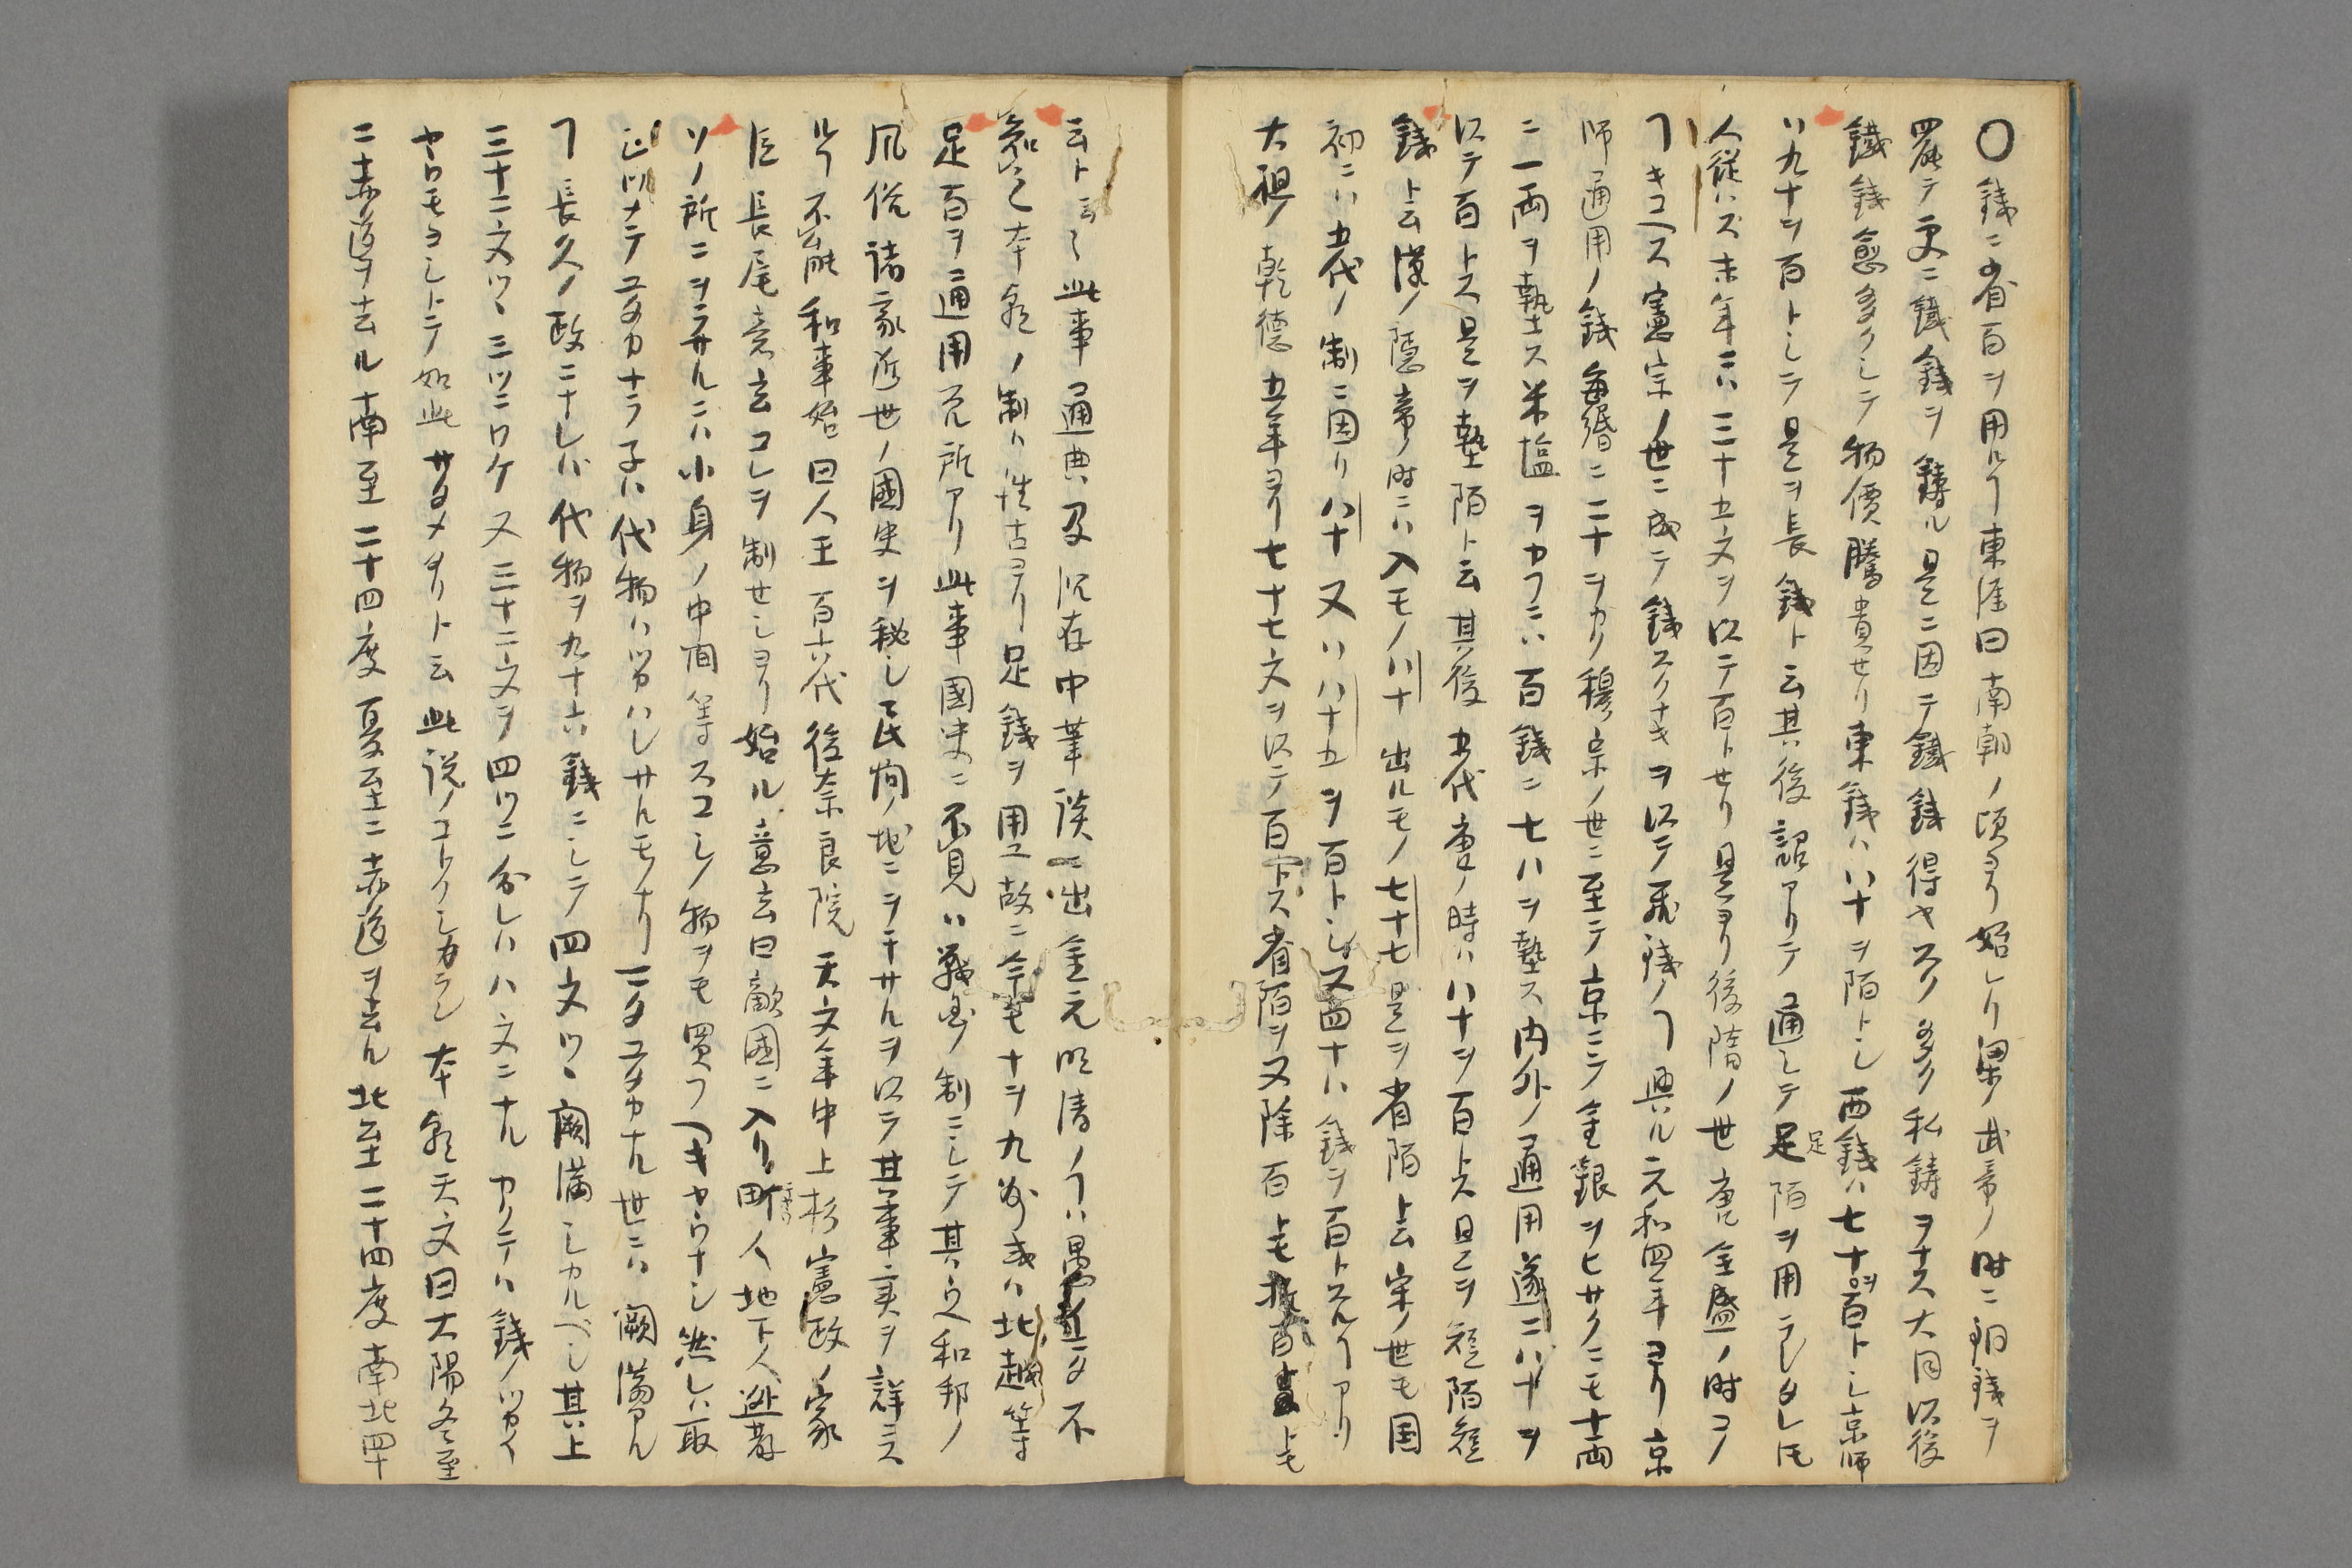 〇錢ニ省百ヲ用ルヿ東涯曰南朝ノ頃ヨリ始レリ梁ノ武帝ノ時ニ銅錢ヲ
罷テ更ニ鐵錢ヲ鑄ル是ニ因テ鐵錢得ヤスク多ク私鑄ヲナス大同以後
鐵錢愈多クシテ物價騰貴セリ東錢ハ八十ヲ陌トシ西錢ハ七十ヲ百トシ京師
ハ九十ヲ百トシテ是ヲ長錢ト云其後詔アリテ通シテ足陌ヲ用ラレタレ𪜈
人從ハズ末年ニハ三十五文ヲ以テ百トセリ是ヨリ後隋ノ世唐ノ全盛ノ時コノ
ヿキコヘス憲宗ノ世ニ成テ錢スクナキヲ以テ飛錢ノヿ興ル元和四年ヨリ京
師通用ノ錢每緡ニ二十ヲカリ穆宗ノ世ニ至テ京ニテ金銀ヲヒサクニモ十兩
ニ一兩ヲ墊ス米塩ヲカフニハ百錢ニ七八ヲ墊ス内外ノ通用遂ニ八十ヲ
以テ百トス是ヲ墊陌ト云其後五代唐ノ時ハ八十ヲ百トス是ヲ短陌短
錢ト云漢ノ隱帝ノ時ニハ入モノ八十出ルモノ七十七是ヲ省陌ト云宋ノ世モ国
初ニハ五代ノ制ニ因リ八十又ハ八十五ヲ百トシ又四十八錢ヲ百トスルヿアリ
太祖ノ乾德五年ヨリ七十七文ヲ以テ百定ス省陌ヲ又除百トモ
云ト云〻此事通典及沉存中筆談ニ出金元明清ノヿハ愚イマタ不
知之本朝ノ制ハ往古ヨリ足錢ヲ用ユ故ニ今モ十ヲ九州或ハ北越等
足百ヲ通用スル所アリ此事國史ニ不見ハ戰國ノ制ニシテ其ウヘ和邦ノ
風俗諸家近世ノ國史ヲ秘シ民間ノ地ニヲチサルヲ以テ其事実ヲ詳ニス
ルヿ不能和事始曰人王百六代後奈良院天文年中上杉憲政ノ家
臣長尾意玄コレヲ制セシヨリ始ル意玄曰敵国ニ入リ町人地下人逃散
ソノ所ニヲラサルニハ小身ノ中間等スコシノ物ヲモ買フヘキヤウナシ然レハ取
ユタカナラ子ハ代物ハツカハレサルモノナリ一タユタカナル世ニハ闕満アル
ヿ長久ノ政ニナレバ代物ヲ九十六錢ニシテ四文ツヽ闕満シカルベシ其上
三十二文ツヽ三ツニワケ又三十二文ヲ四ツニ分レハ八文ニナルカクテハ錢ノツカイ
ヤウモヨシトテ如此サタメタリト云此説ノコトクシカラン本朝天文曰大陽冬至
ニ赤道ヲ去ル南至二十四度夏至ニ赤道ヲ去ル北至二十四度南北四